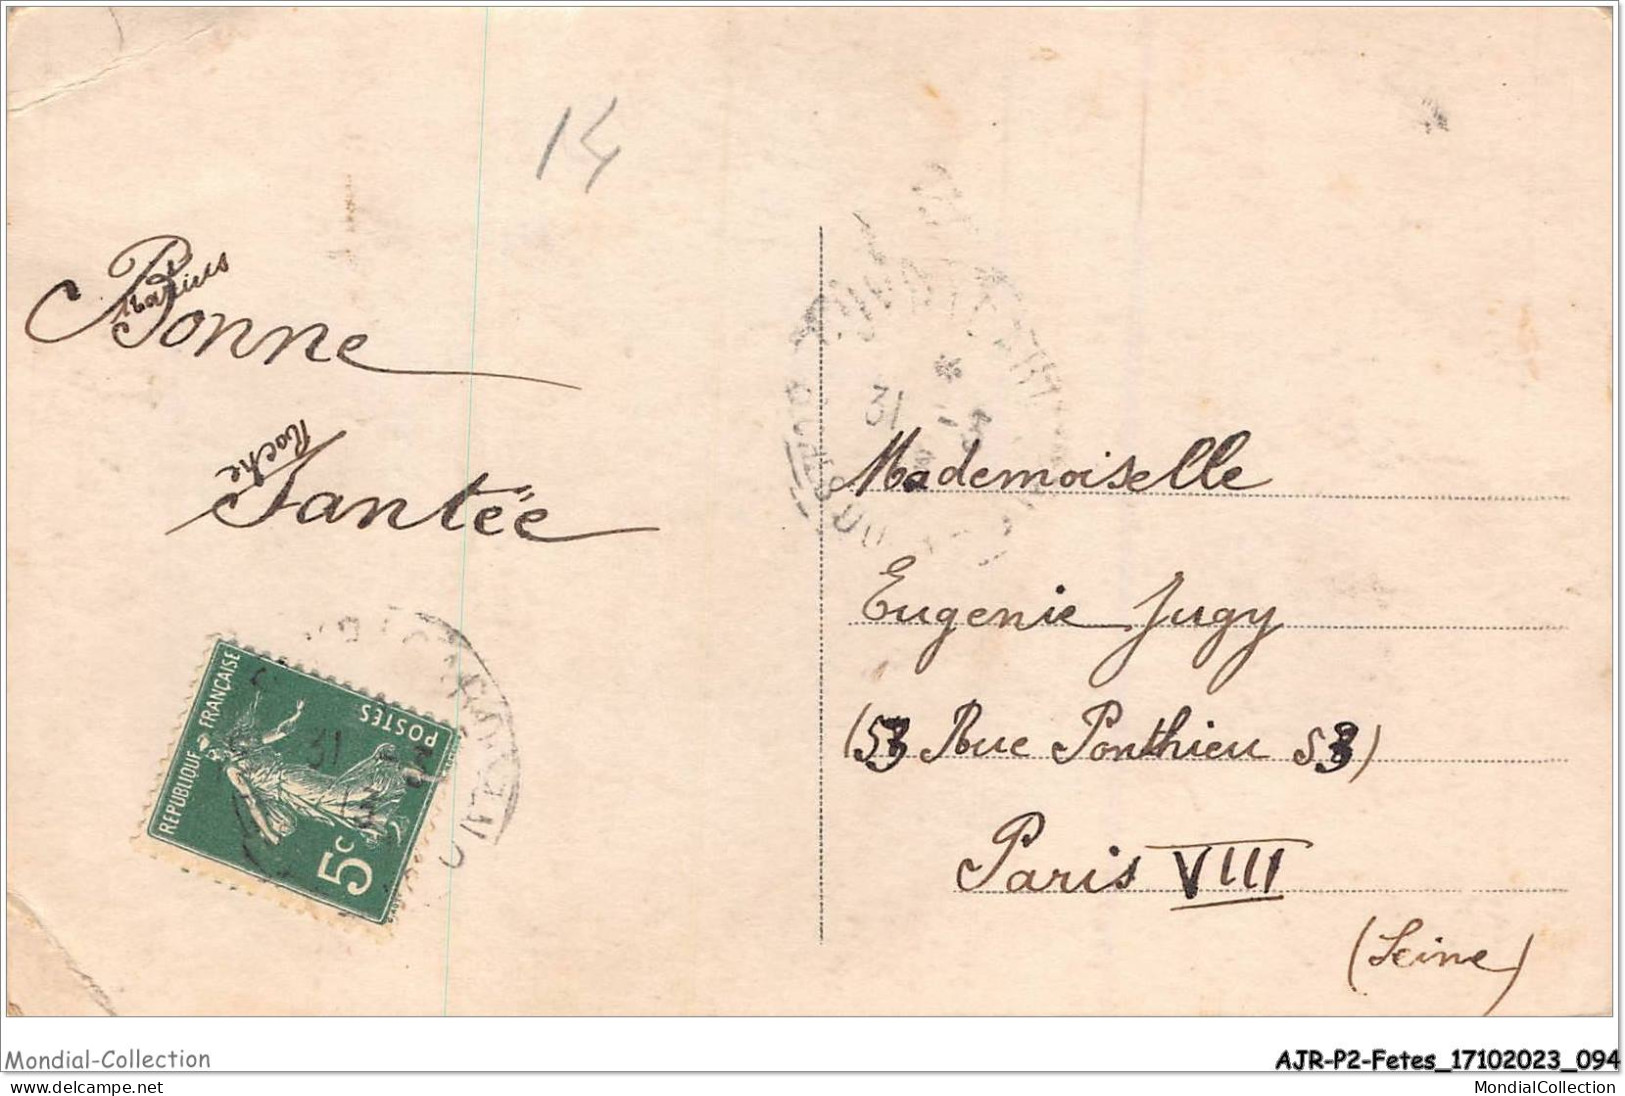 14
Marius
Bonne
Roche
Santée
Mademoiselle
Eugenie Jugy
(53 Rue Ponthieu 53)
Paris VIII
(Seine)
REPUBLIQUE FRANÇAISE
POSTES
5c
31
31
Mondial-Collection
AJR-P2-Fetes_17102023_094
MondialCollection